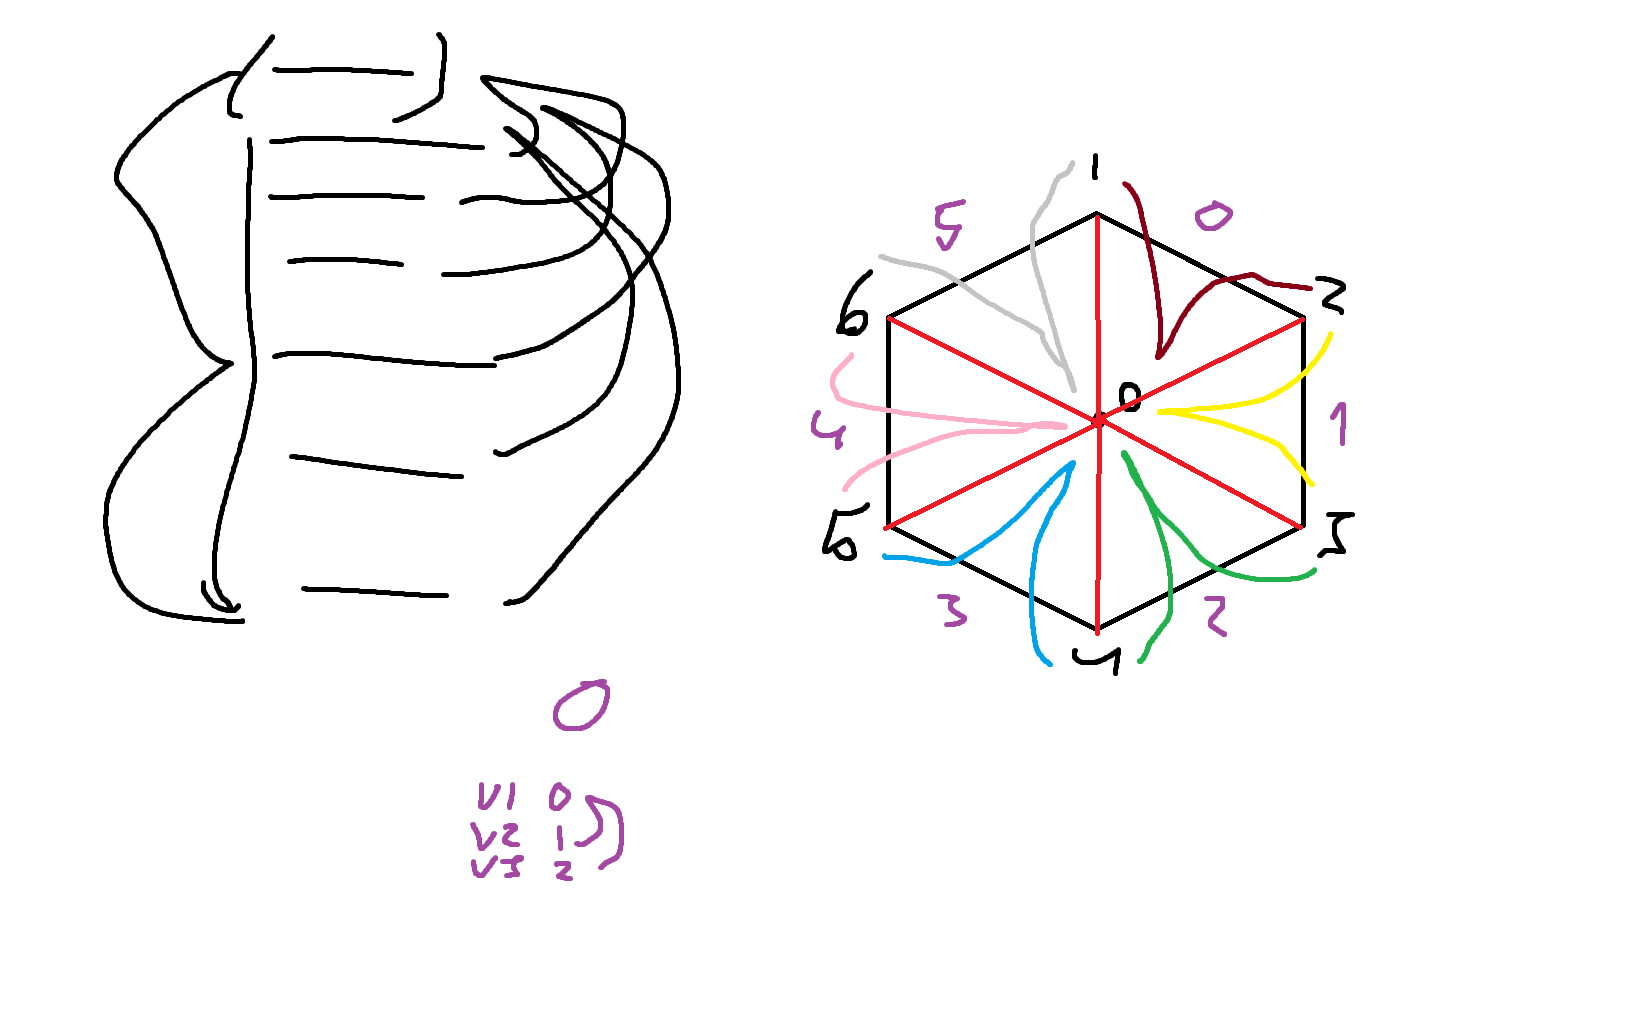 1
5 0
6 2
0
4 1
5 3
3 2
4
0
V1 0
V2 1
V3 2